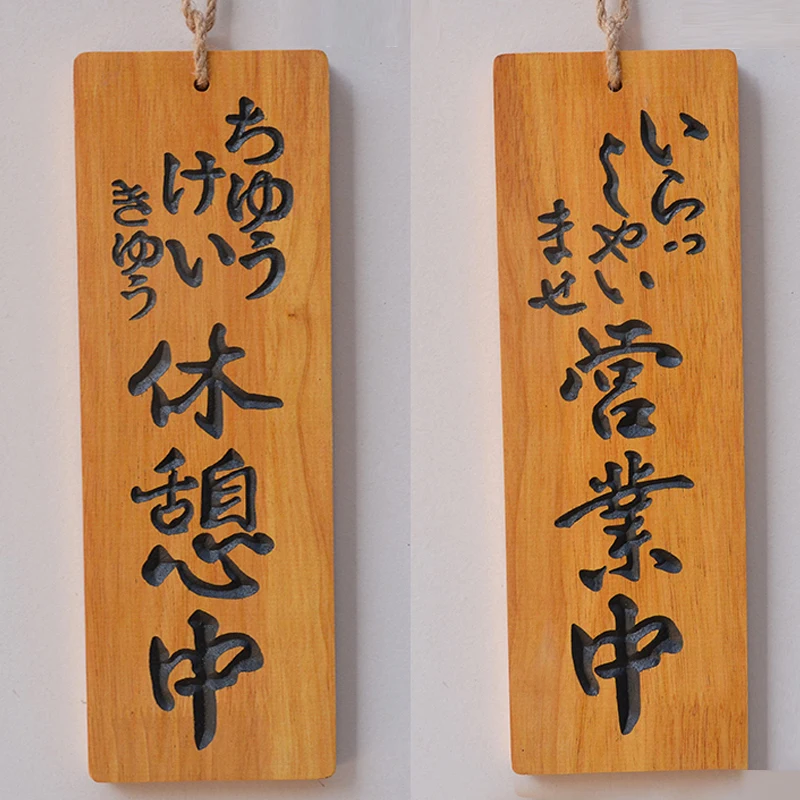 ちゆう
けい
きゆう
休憩中
いらっ
しゃい
ませ
営業中